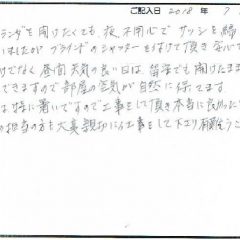 ご記入日 2018 年 7
ランダを開けたくても、夜、不用心で サッシを締
いましたが ブラインドのシャッターを付けて頂き 安心し
けでなく、昼間、天気の良い日は、留守でも開けたまま
できますので部屋の空気が自然に保てます。
は特に暑いですので工事をして頂き本当に良かった
の担当の方も大変親切に工事をして下さり